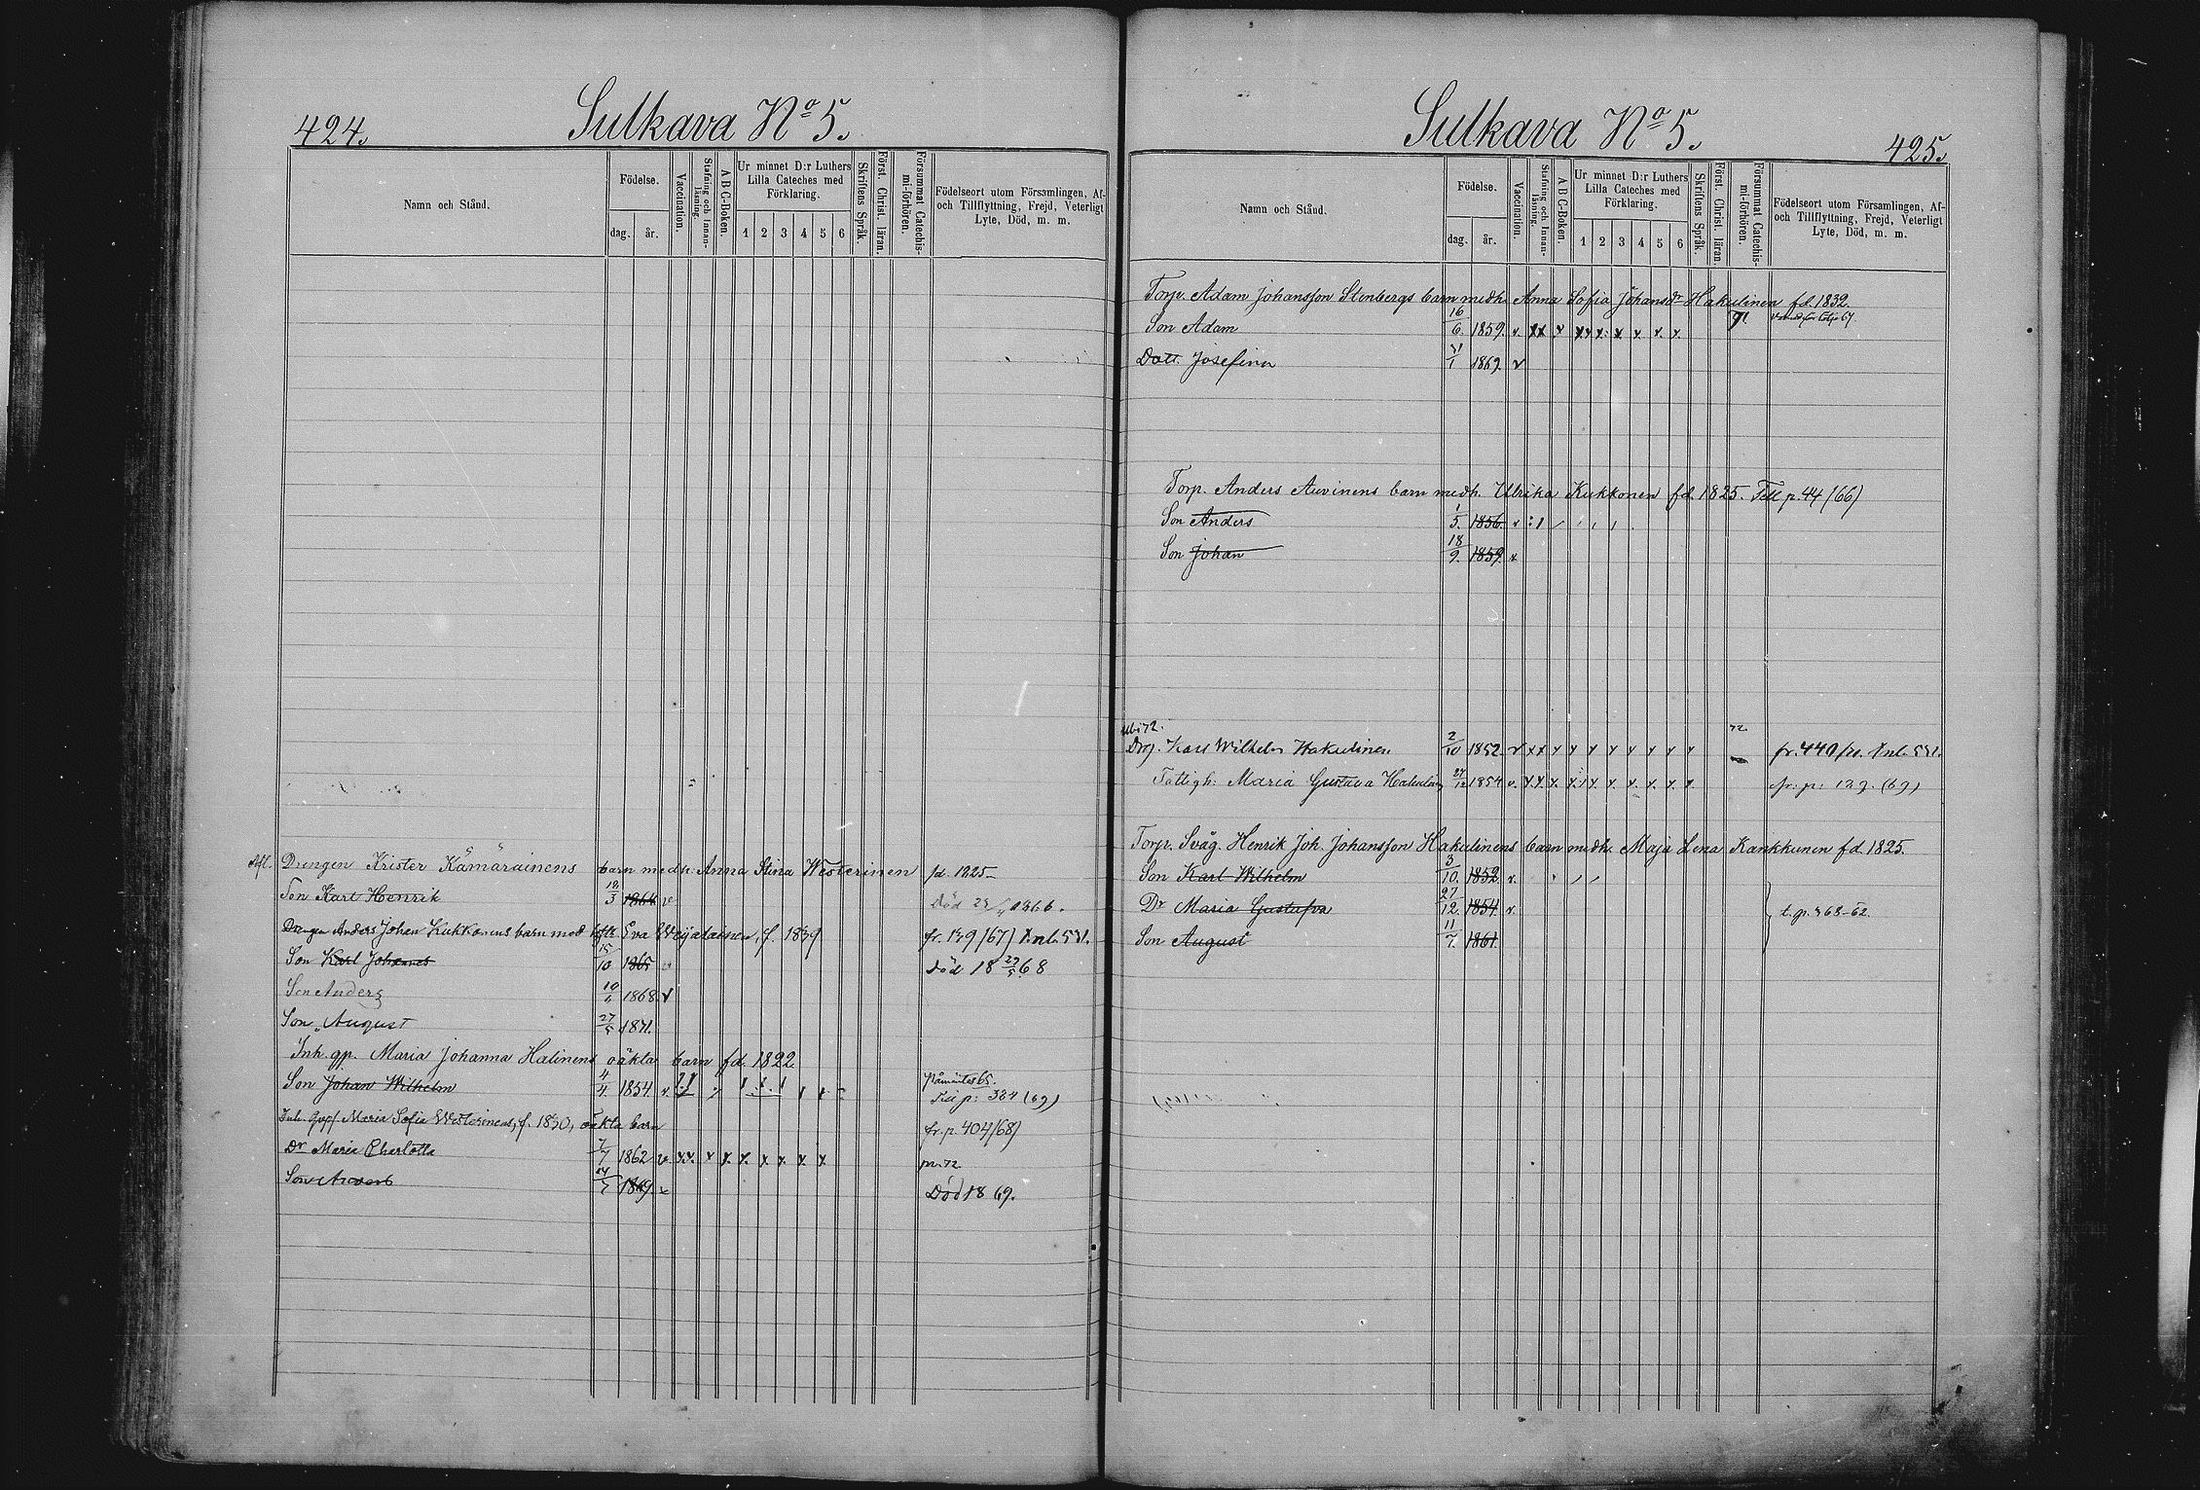 424.
Sulkava No 5.
Namn och Stånd.
Födelse.
dag.
år.
Vaccination.
Stafning och Innan-
läsning.
A B C-Boken.
Ur minnet D:r Luthers
Lilla Cateches med
Förklaring.
1 2 3 4 5 6
Skriftens Språk.
Först. Christ. läran.
Försummat Catechis-
mi-förhören.
Födelseort utom Församlingen, Af-
och Tillflyttning, Frejd, Veterligt
Lyte, Död, m. m.
Afl. Drengen Krister Kämäräinens barn medh. Anna Stina Westerinen fd. 1825
Son Karl Henrik 12/3 1864 v Död 1866.
Drengen Anders Johan Kukkonens barn med Eva f. 1839 fr. 149/67/ Xnl. 531.
Son Karl Johannes 15/10 1865 Död 18 68
Son Anders 10/6 1868 v
Son August 27/5 1871.
Inh. qp. Maria Johanna Halinens oäkta barn fd. 1822
Son Johan Wilhelm 4/4. 1854 v.
Till p: 384 (69)
Inh. Maria Sofia Westerinens, f. 1830, oäkta barn fr. p. 404/68/
Dr Maria Charlotta 7/7 1862 v. x x. x x. x. x. x. x. x
Son Anders 1869. Död 1869.
Sulkava No 5.
425.
Namn och Stånd.
Födelse.
dag.
år.
Vaccination.
Stafning och Innan-
läsning.
A B C-Boken.
Ur minnet D:r Luthers
Lilla Cateches med
Förklaring.
1 2 3 4 5 6
Skriftens Språk.
Först. Christ. läran.
Försummat Catechis-
mi-förhören.
Födelseort utom Församlingen, Af-
och Tillflyttning, Frejd, Veterligt
Lyte, Död, m. m.
Torp. Adam Johansson Stenbergs barn medh. Anna Sofia Johansdr Hakulinen fd. 1832.
Son Adam 16/6. 1859. v. x x x x x x. x x. x. x. 71
Dott. Josefina 1869. v
Torp. Anders Auvinens barn medh. Ulrika Kukkonen fd. 1825. Till p. 44 (66)
Son Anders 1/5. 1856. v
Son Johan 18/9. 1859. v
72
Drg. Karl Wilhelm Hakulinen 2/10 1852. v x x x x x x x x x x fr. 440/70. Xnl. 531.
Fattigh. Maria Gustava Hakulin 27/12 1854 v. x x. x. x x. x. x. x. x. x fr. p: 129. (69)
Torp. Svåg. Henrik Joh. Johansson Hakulinens barn medh. Maja Lena Kankkunen fd. 1825.
Son Karl Wilhelm 3/10. 1852. v.
Dr Maria Gustafva 27/12. 1854 v. t. p. 368-62.
Son August 11/7. 1861.